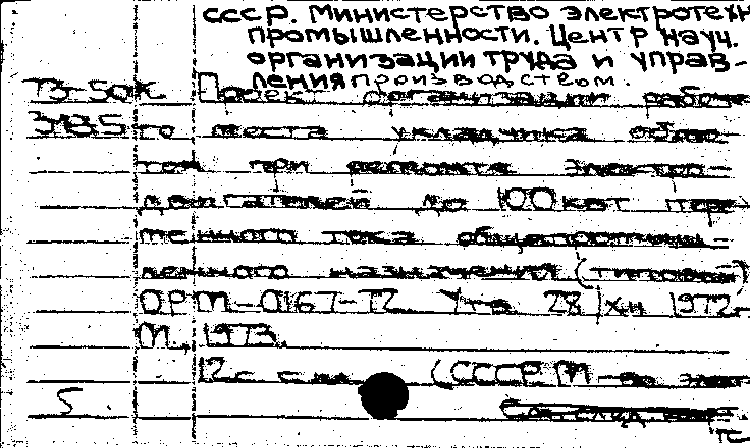 СССР. Министерство электротехн
промышленности. Центр науч.
организации труда и управ-
ления производством.
ТЗ-50К Проект организации рабоче
3135 го места укладчика обмо-
ток при ремонте электро-
двигателей до 100 квт пере-
менного тока общепромыш-
ленного назначения (типовой)
ОРМ-0167-72. Утв. 28/XII 1972г
М., 1973.
12 с. с ил. (СССР М-во элект
5. См. след.